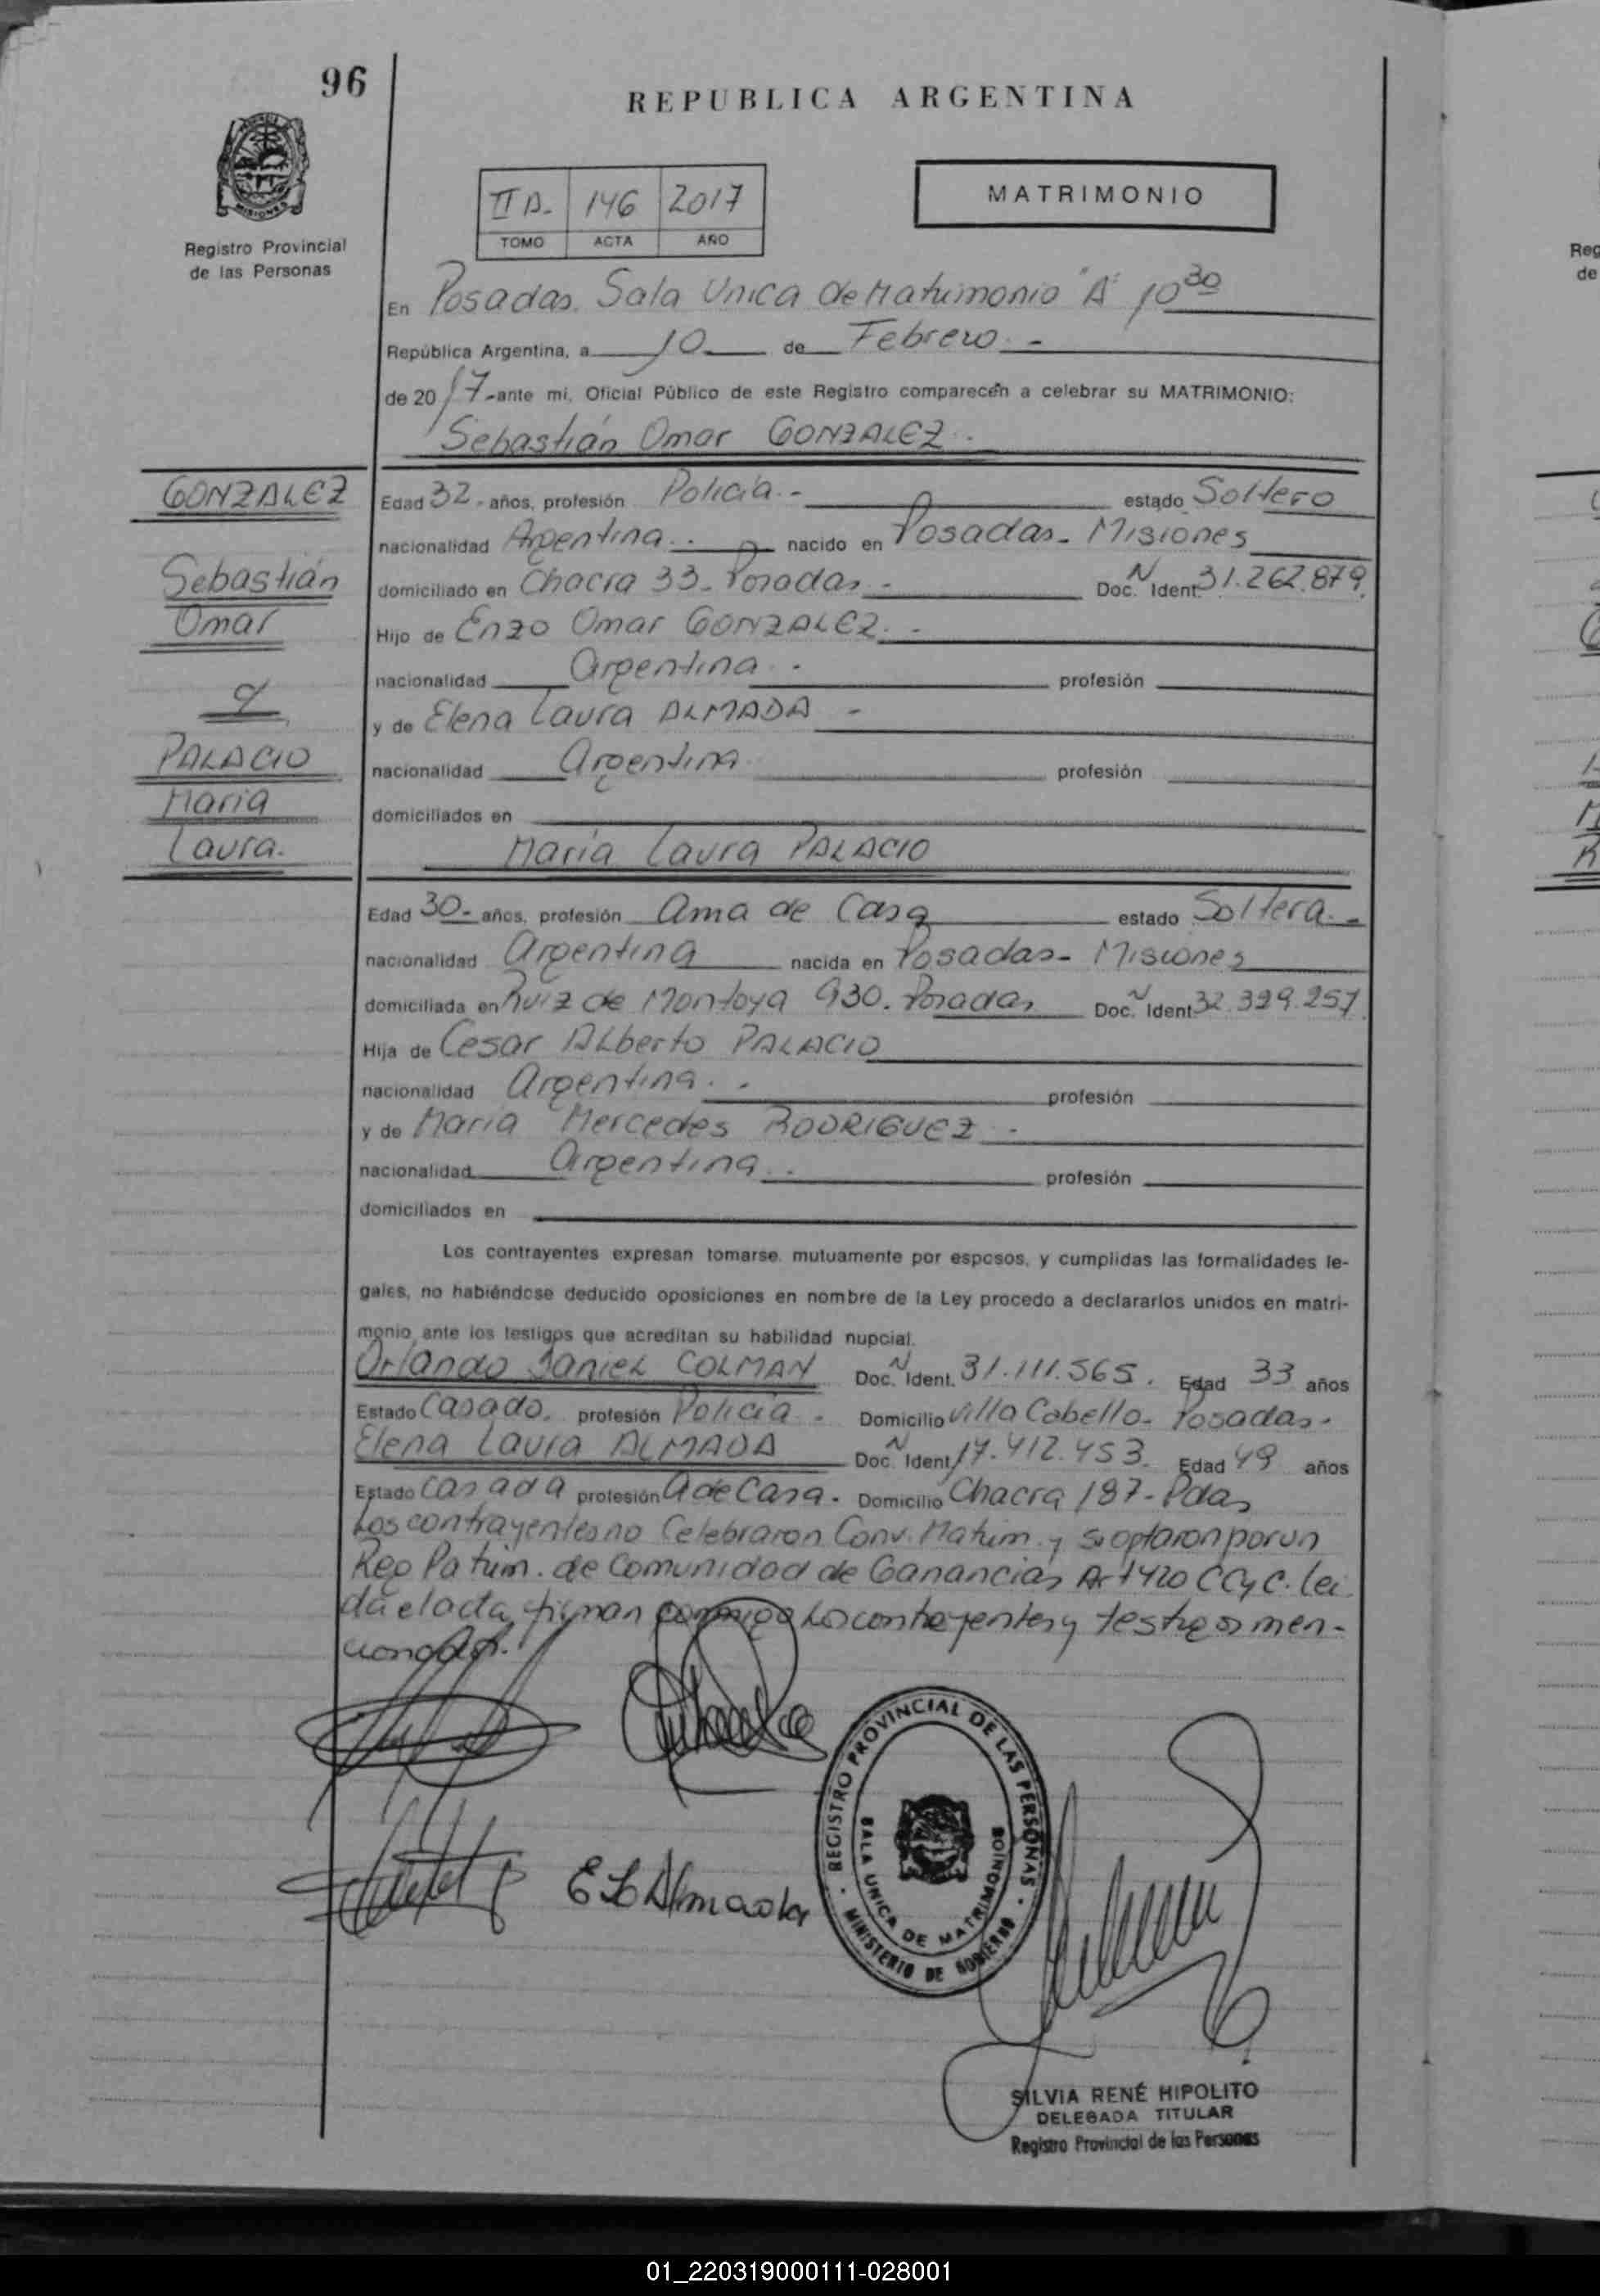 96
REPUBLICA ARGENTINA
MISIONES
Registro Provincial
de las Personas
II A- 146 2017
TOMO ACTA AÑO
MATRIMONIO
En Posadas. Sala Unica de Matrimonio "A" 10 30
República Argentina, a 10 de Febrero.-
de 2017-ante mí, Oficial Público de este Registro comparecen a celebrar su MATRIMONIO:
Sebastián Omar GONZALEZ.
GONZALEZ
Sebastián
Omar
y
PALACIO
María
Laura.
Edad 32- años, profesión Policía.- estado Soltero
nacionalidad Argentina.- nacido en Posadas- Misiones
domiciliado en Chacra 33- Posadas.- Doc. N Ident. 31.262.879
Hijo de Enzo Omar GONZALEZ.-
nacionalidad Argentina.- profesión
y de Elena Laura ALMADA -
nacionalidad Argentina profesión
domiciliados en
María Laura PALACIO
Edad 30- años, profesión Ama de Casa estado Soltera.-
nacionalidad Argentina nacida en Posadas- Misiones
domiciliada en Ruiz de Montoya 930. Posadas Doc. N Ident. 32.399.257
Hija de Cesar Alberto PALACIO
nacionalidad Argentina.- profesión
y de María Mercedes RODRIGUEZ -
nacionalidad Argentina.- profesión
domiciliados en
Los contrayentes expresan tomarse mutuamente por esposos, y cumplidas las formalidades le-
gales, no habiéndose deducido oposiciones en nombre de la Ley procedo a declararlos unidos en matri-
monio ante los testigos que acreditan su habilidad nupcial.
Orlando Daniel COLMAN Doc. N Ident. 31.111.565. Edad 33 años
Estado Casado. profesión Policía. Domicilio Villa Cabello- Posadas.
Elena Laura ALMADA Doc. N Ident. 17.412.453. Edad 49 años
Estado Casada profesión A de Casa. Domicilio Chacra 187- Pdas
Los contrayentes no Celebraron Conv. Matrim. y si optaron por un
Reg Patrim. de Comunidad de Ganancias Art 420 CCyC. lei
da el acta, firman conmigo los contrayentes y testigos men-
cionados.
E L Almada
REGISTRO PROVINCIAL DE LAS PERSONAS
SALA UNICA DE MATRIMONIOS
MINISTERIO DE GOBIERNO
SILVIA RENÉ HIPOLITO
DELEGADA TITULAR
Registro Provincial de las Personas
Reg
de
01_220319000111-028001